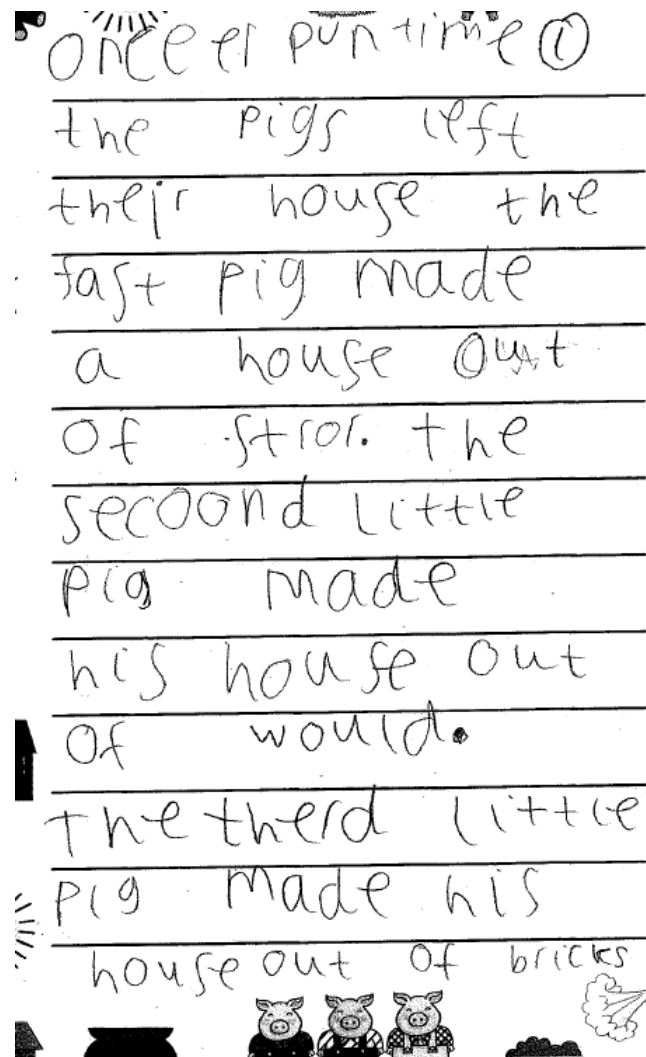 onece er pun time ①
the pigs left
their house the
fast pig made
a house out
of stror. the
secoond little
pig made
his house out
of would.
the therd little
pig made his
house out of bricks